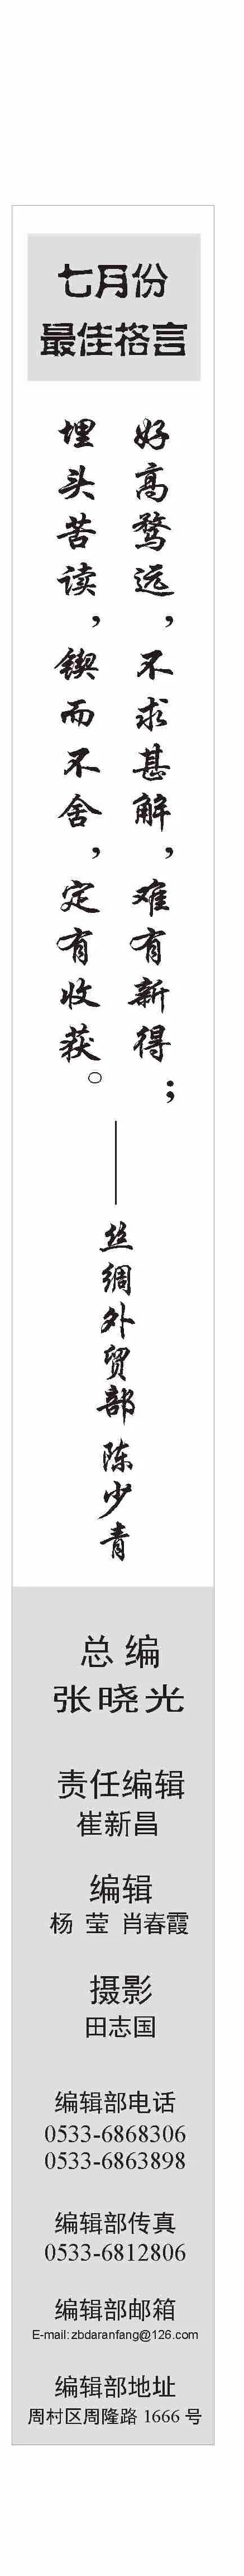 七月份
最佳格言
好高骛远，不求甚解，难有新得；
埋头苦读，锲而不舍，定有收获。
——丝绸外贸部 陈少青
总 编
张晓光
责任编辑
崔新昌
编辑
杨 莹 肖春霞
摄影
田志国
编辑部电话
0533-6868306
0533-6863898
编辑部传真
0533-6812806
编辑部邮箱
E-mail:zbdaranfang@126.com
编辑部地址
周村区周隆路 1666 号